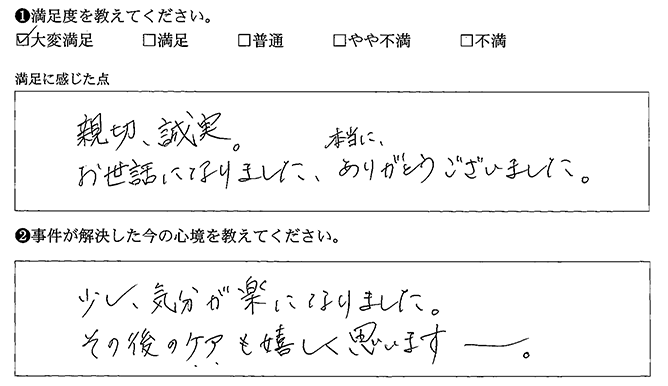 ❶満足度を教えてください。
☑大変満足 □満足 □普通 □やや不満 □不満
満足に感じた点
親切、誠実。
本当に、
お世話になりました、ありがとうございました。
❷事件が解決した今の心境を教えてください。
少し、気分が楽になりました。
その後のケアも嬉しく思います―。